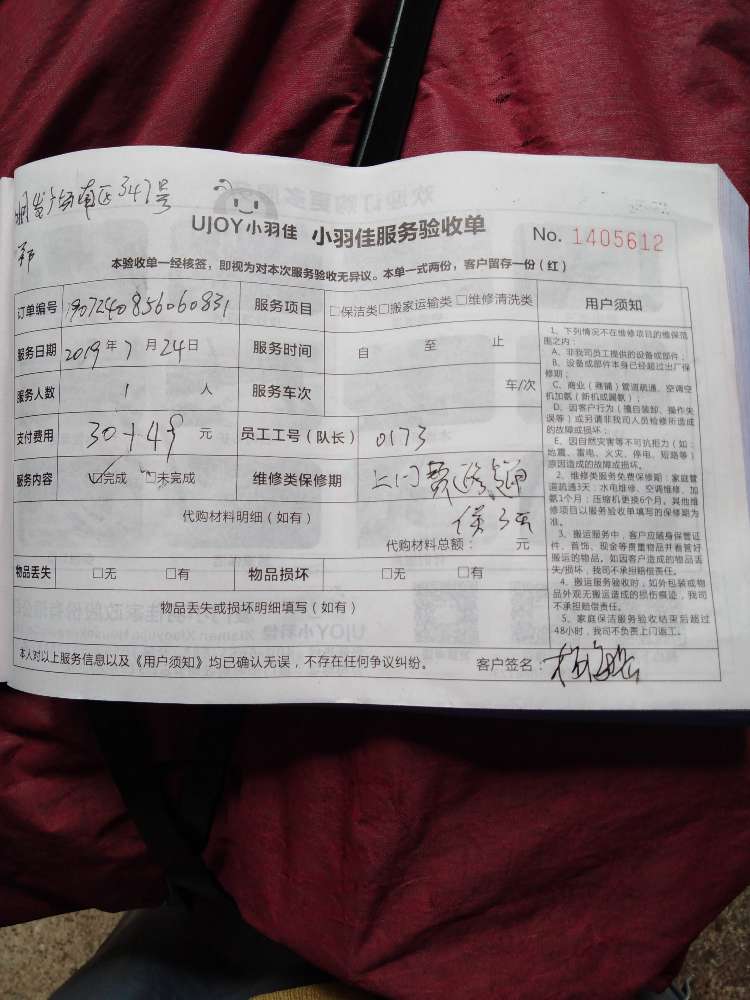 南区347号
UJOY小羽佳 小羽佳服务验收单 No. 1405612
本验收单一经核签，即视为对本次服务验收无异议。本单一式两份，客户留存一份（红）
订单编号 1907240856060831 服务项目 □保洁类□搬家运输类□维修清洗类 用户须知
服务日期 2019年7月24日 服务时间 自 至 止
服务人数 1 人 服务车次 车/次
支付费用 30+49 元 员工工号（队长） 0173
服务内容 ☑完成 □未完成 维修类保修期 上门费 疏通
代购材料明细（如有） 保3天
代购材料总额： 元
物品丢失 □无 □有 物品损坏 □无 □有
物品丢失或损坏明细填写（如有）
本人对以上服务信息以及《用户须知》均已确认无误，不存在任何争议纠纷。 客户签名：
1、下列情况不在维修项目的维保范
围之内：
A、非我司员工提供的设备或部件；
B、设备或部件本身已经超过出厂保
修期；
C、商业（商铺）管道疏通、空调空
机加氨（新机或漏氨）；
D、因客户行为（擅自装卸、操作失
误等）或另请非我司人员检修所造成
的故障或损坏；
E、因自然灾害等不可抗拒力（如：
地震、雷电、火灾、停电、短路等）
原因造成的故障或损坏。
2、维修类服务免费保修期：家庭管
道疏通3天；水电维修、空调维修、加
氨1个月；压缩机更换6个月。其他维
修项目以服务验收单填写的保修期为
准。
3、搬运服务中，客户应随身保管证
件、首饰、现金等贵重物品并看管好
搬运的物品。如因客户造成的物品丢
失/损坏，我司不承担赔偿责任。
4、搬运服务验收时，如外包装或物
品外观无搬运造成的损伤痕迹，我司
不承担赔偿责任。
5、家庭保洁服务验收结束后超过
48小时，我司不负责上门返工。